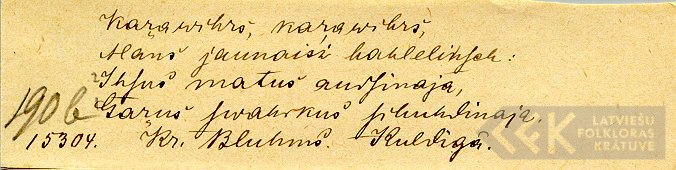 Kaŗawihrs, kaŗawihrs,
Mans jaunaisi bahlelinsch:
Ihsus matus audsinaja,
190b Garus swahrkus schuhdinaja.
15304. Kr. Bluhms. Kuldīgā.
LATVIEŠU
FOLKLORAS
KRĀTUVE